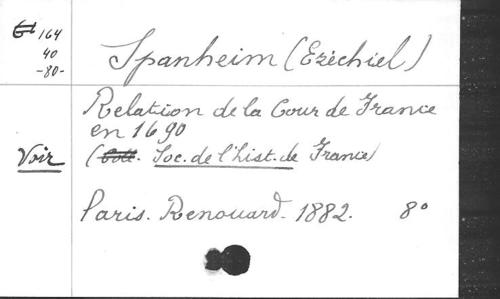 164
40
-80-
Spanheim (Ezéchiel)
Relation de la Cour de France
en 1690
Voir
(Coll. Soc. de l'hist. de France)
Paris. Renouard. 1882. 8°